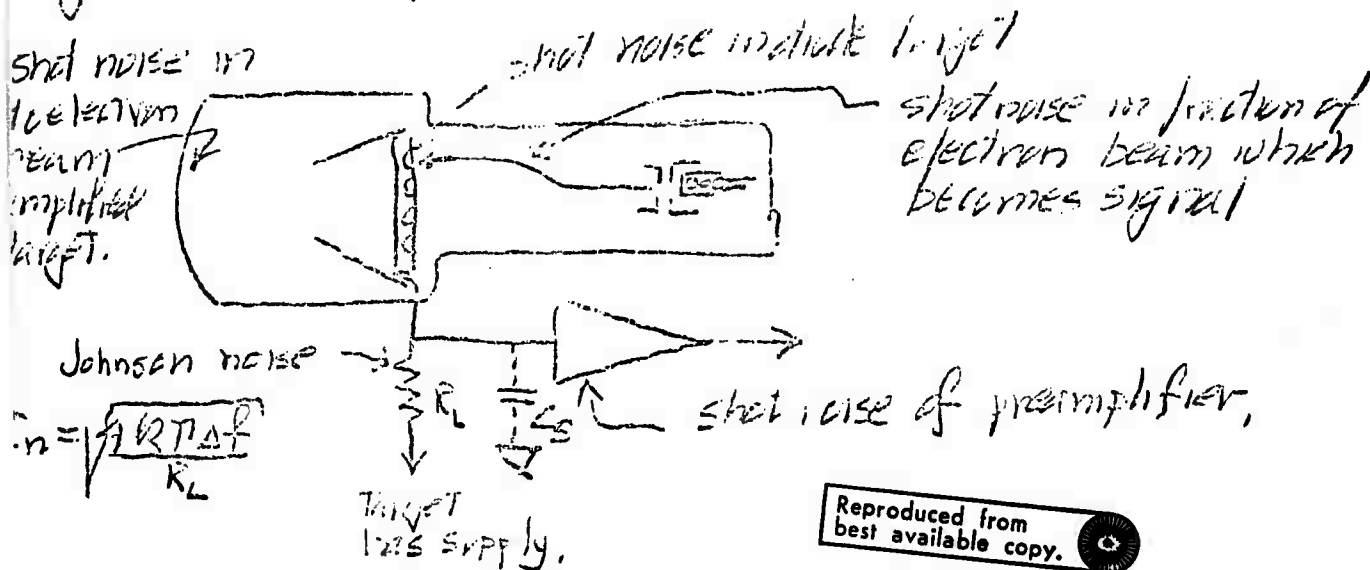 shot noise in
electron
beam
amplified
target.
shot noise in diode target
shot noise in fraction of
electron beam which
becomes signal
Johnson noise
R_L
C_S
shot noise of preamplifier.
R_L
Target
bias supply.
Reproduced from
best available copy.